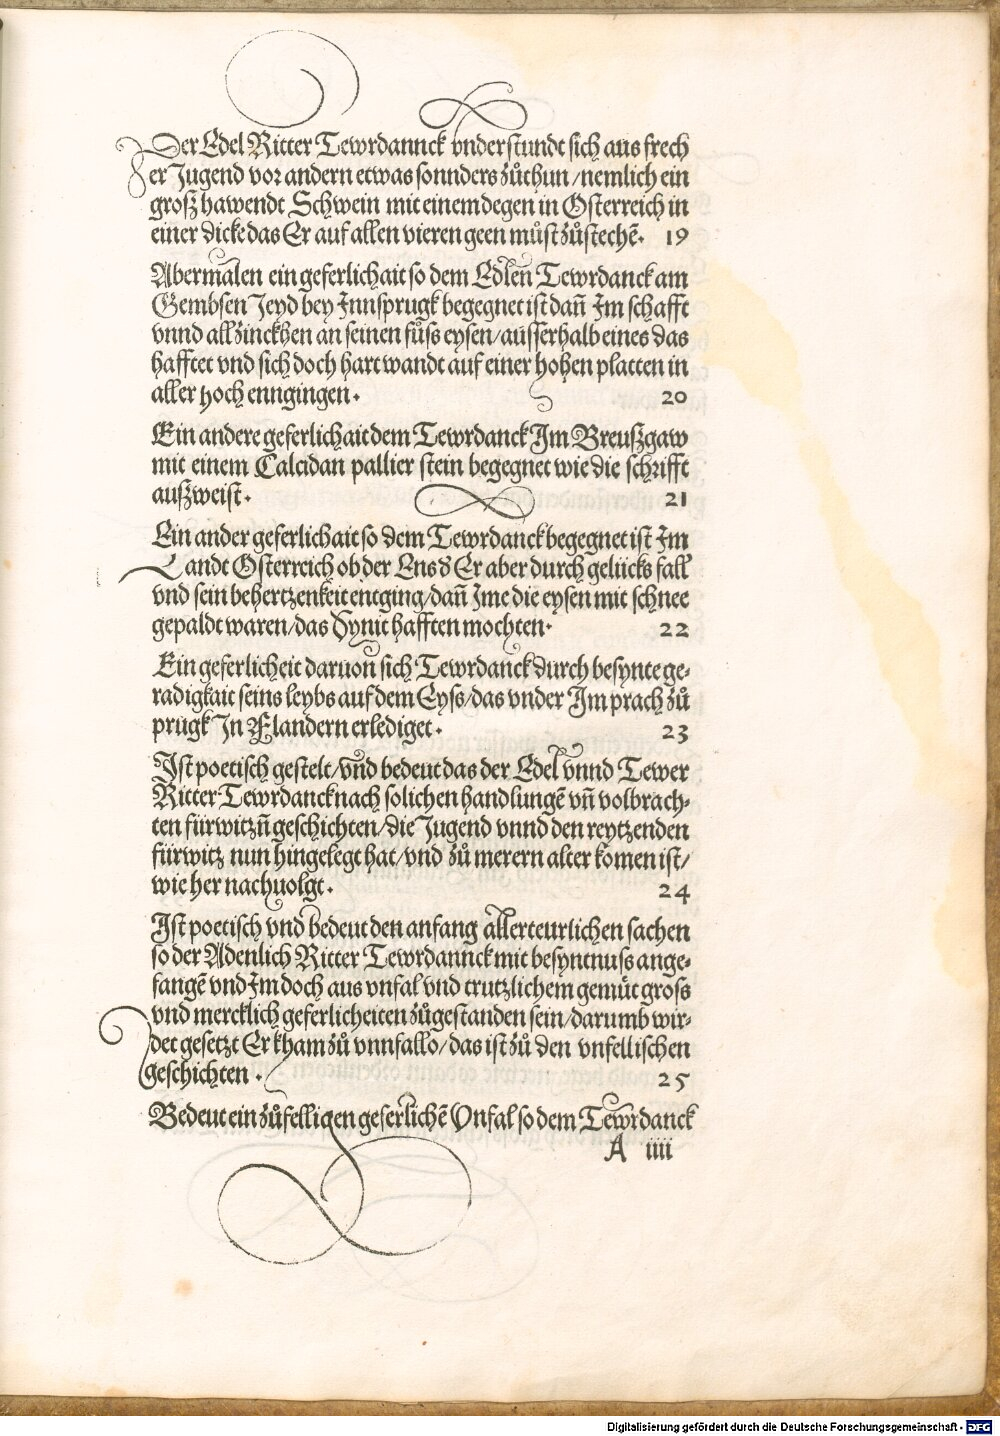 Der Edel Ritter Tewrdannck vnderstundt sich aus frech
er Jugend vor andern etwas sonnders zůthun/nemlich ein
groß hawendt Schwein mit einem degen in Osterreich in
einer dicke das Er auf allen vieren geen můst zůstechē. 19
Abermalen ein geferlichait so dem Edlen Tewrdanck am
Gembsen Jeyd bey Jnnsprugk begegnet ist dañ Jm schafft
vnnd all zinckhen an seinen fůss eysen/ausserhalb eines das
hafftet vnd sich doch hart wandt auf einer hohen platten in
aller hoch enngingen. 20
Ein andere geferlichait dem Tewrdanck Jm Breußgaw
mit einem Calcidan pallier stein begegnet wie die schrifft
außweist. 21
Ein ander geferlichait so dem Tewrdanck begegnet ist Jm
Landt Osterreich ob der Ens d Er aber durch gelücks fall
vnd sein behertzenkeit entging/dañ Jme die eysen mit schnee
gepaldt waren/das Sy nit hafften mochten. 22
Ein geferlicheit daruon sich Tewrdanck durch besynte ge-
radigkait seins leybs auf dem Eyss/das vnder Jm prach zů
prugk Jn Flandern erlediget. 23
Jst poetisch gestelt/vnd bedeut das der Edel vnnd Tewer
Ritter Tewrdanck nach solichen handlungē vñ volbrach-
ten fürwitzñ geschichten/die Jugend vnnd den reytzenden
fürwitz nun hingelegt hat/vnd zů merern alter komen ist/
wie her nachuolgt. 24
Jst poetisch vnd bedeut den anfang allerteurlichen sachen
so der Adenlich Ritter Tewrdannck mit besyntnuss ange-
fangē vnd Jm doch aus vnfal vnd trutzlichem gemüt gross
vnd mercklich geferlicheiten zůgestanden sein/darumb wir-
det gesetzt Er kham zů vnnfallo/das ist zů den vnfellischen
geschichten. 25
Bedeut ein zůfelligen geferlichē Vnfal so dem Tewrdanck
A iiii
Digitalisierung gefördert durch die Deutsche Forschungsgemeinschaft - DFG